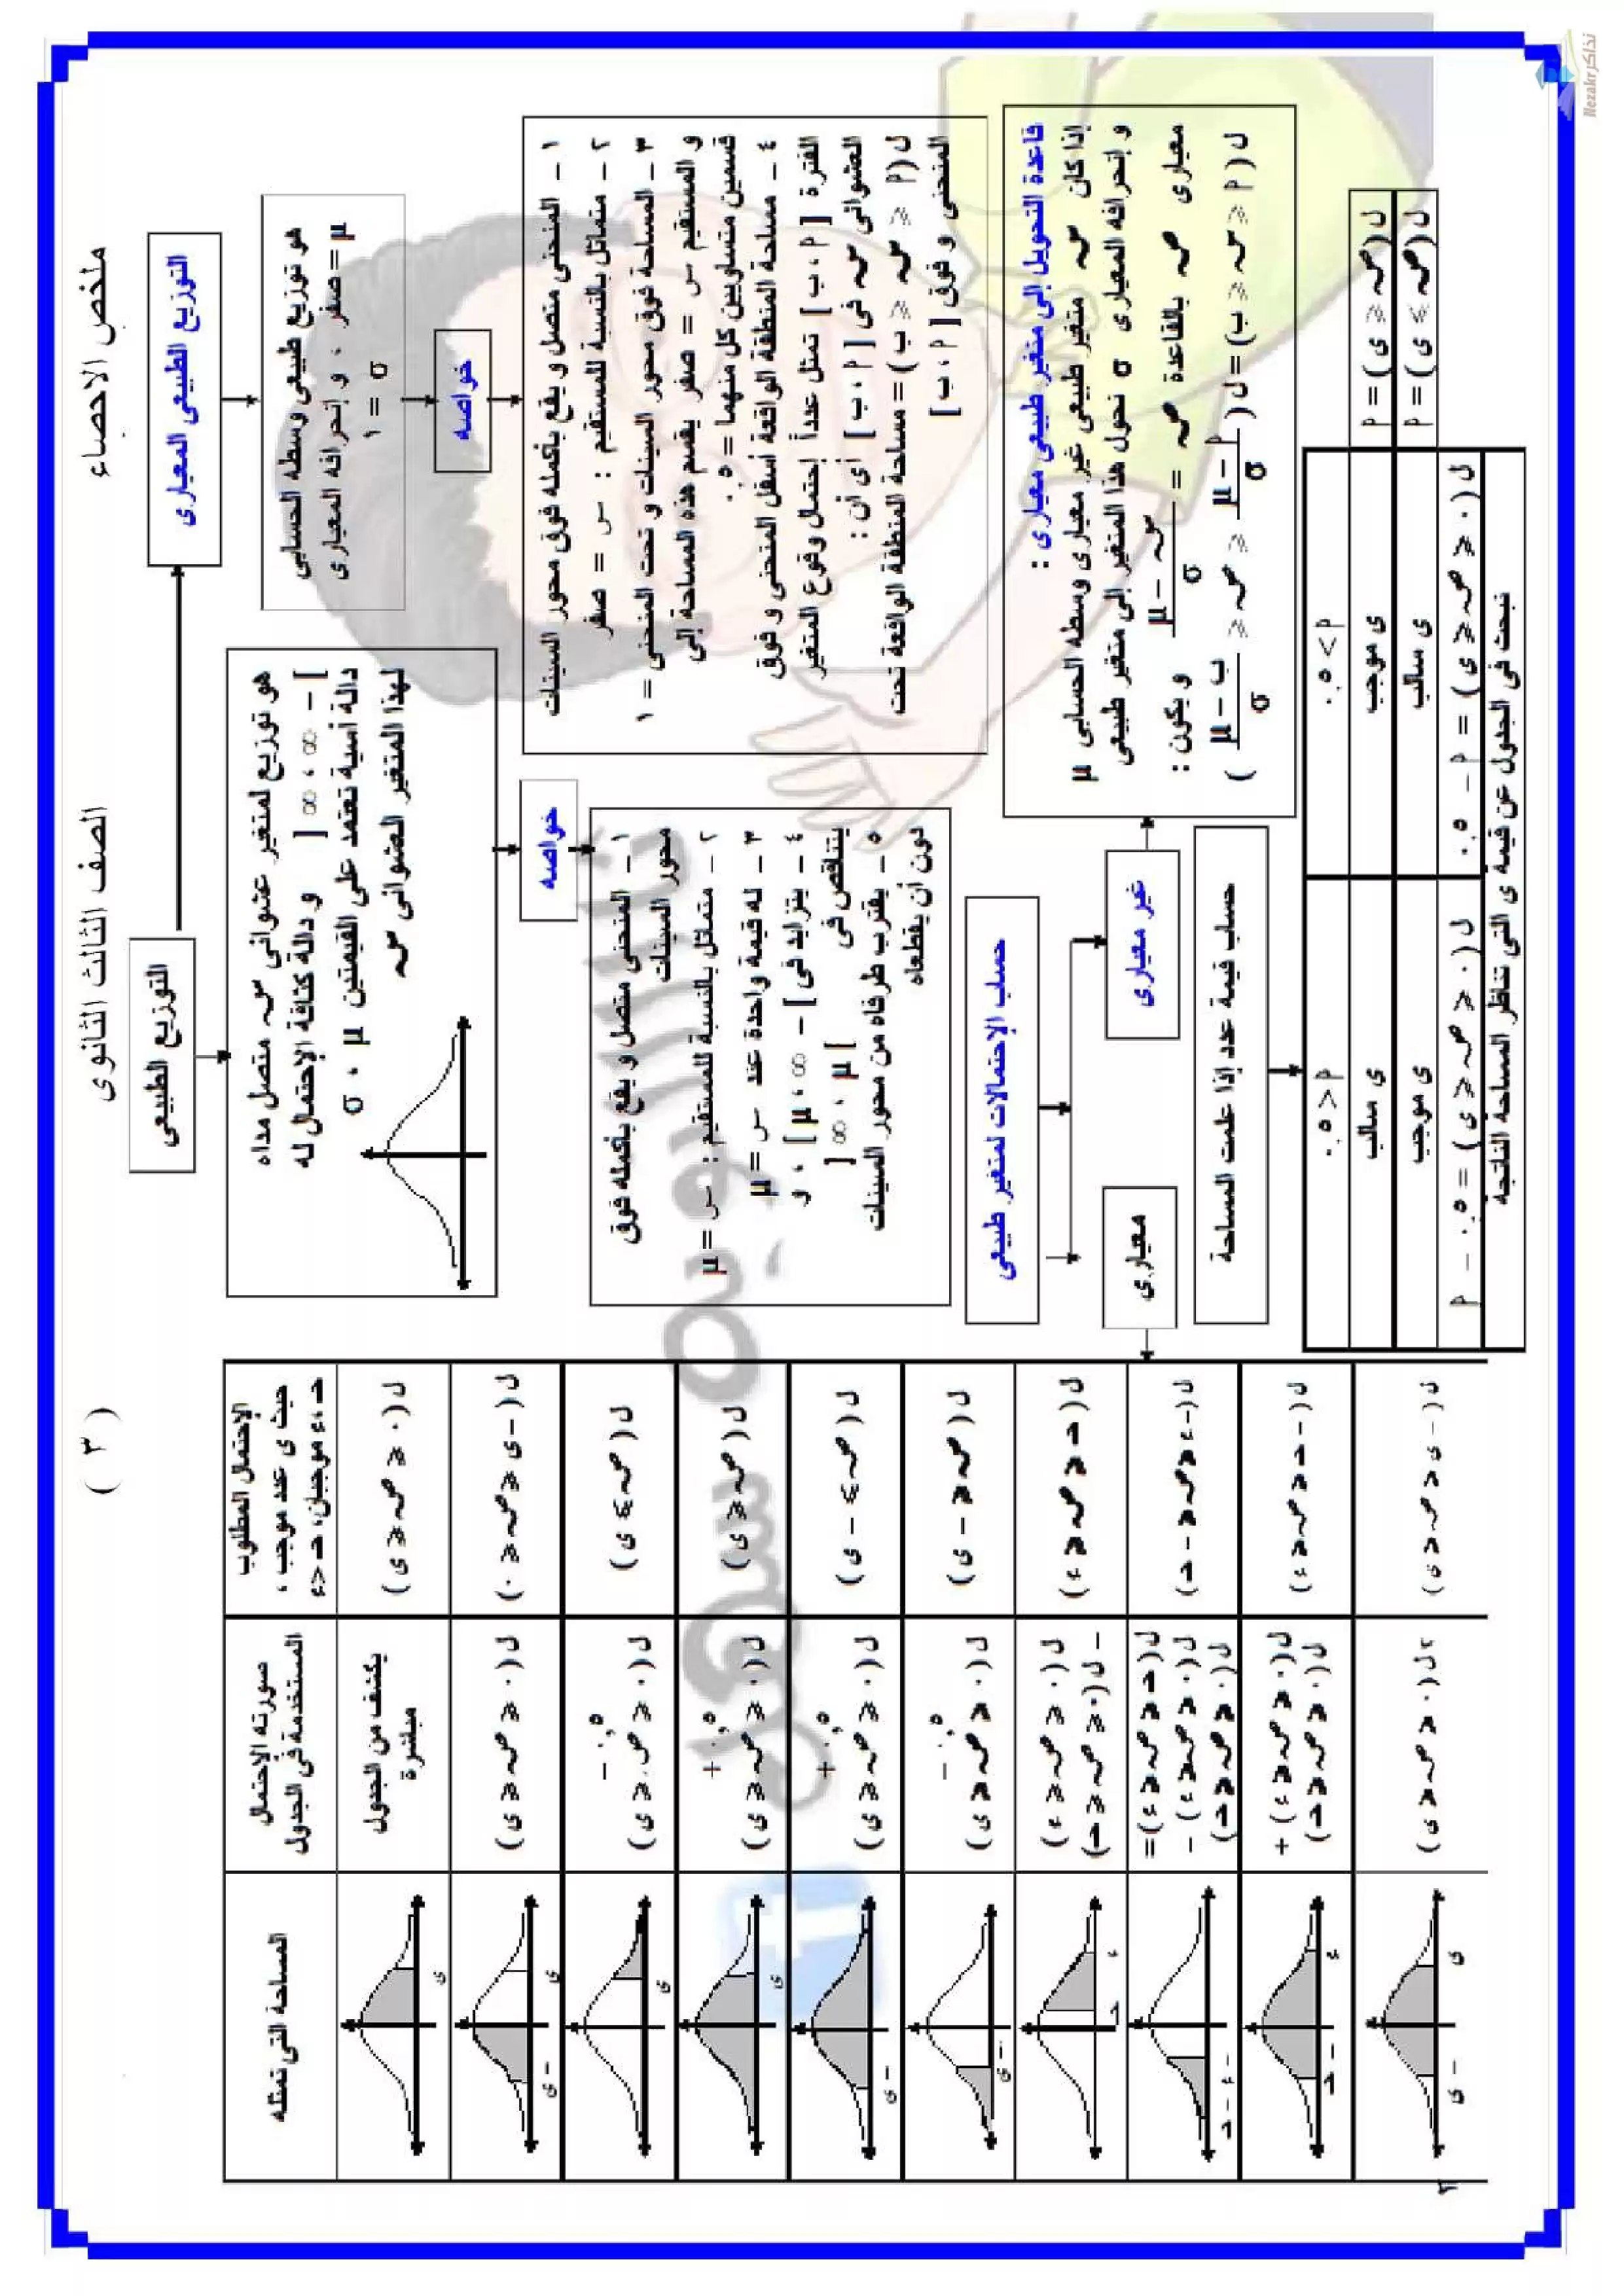 ملخص الاحصاء
الصف الثالث الثانوى
( ٣ )
التوزيع الطبيعى
هو توزيع لمتغير عشوائى س متصل مداه
] - ∞ ، ∞ [ و دالة كثافة الإحتمال له
دالة أسية تعتمد على القيمتين μ ، σ
لهذا المتغير العشوائى س
خواصه
١ - المنحنى متصل و يقع بأكمله فوق
محور السينات
٢ - متماثل بالنسبة للمستقيم : س = μ
٣ - له قيمة واحدة عند س = μ
٤ - يتزايد فى ] - ∞ ، μ ] ، و
يتناقص فى [ μ ، ∞ [
٥ - يقترب طرفاه من محور السينات
دون أن يقطعاه
التوزيع الطبيعى المعيارى
هو توزيع طبيعى وسطه الحسابى
μ = صفر ، و إنحرافه المعيارى
σ = ١
خواصه
١ - المنحنى متصل و يقع بأكمله فوق محور السينات
٢ - متماثل بالنسبة للمستقيم : س = صفر
٣ - المساحة فوق محور السينات و تحت المنحنى = ١
و المستقيم س = صفر يقسم هذه المساحة إلى
قسمين متساويين كل منهما = ٠,٥
٤ - مساحة المنطقة الواقعة أسفل المنحنى و فوق
الفترة [ ٢ ، ب ] تمثل عدداً إحتمال وقوع المتغير
العشوائى س فى [ ٢ ، ب ] أى أن :
ل ( ٢ ⩽ س ⩽ ب ) = مساحة المنطقة الواقعة تحت
المنحنى و فوق [ ٢ ، ب ]
حساب الإحتمالات لمتغير طبيعى
معيارى
غير معيارى
قاعدة التحويل إلى متغير طبيعى معيارى :
إذا كان س متغير طبيعى غير معيارى وسطه الحسابى μ
و إنحرافه المعيارى σ نحول هذا المتغير إلى متغير طبيعى
معيارى ص بالقاعدة ص = (س - μ) / σ و يكون :
ل ( ٢ ⩽ س ⩽ ب ) = ل ( (٢ - μ) / σ ⩽ ص ⩽ (ب - μ) / σ )
حساب قيمة عدد إذا علمت المساحة
٢ > ٠,٥
٢ < ٠,٥
ل ( ص ⩾ ى ) = ٢
ى موجب
ى سالب
ل ( ص ⩽ ى ) = ٢
ى سالب
ى موجب
ل ( ٠ ⩽ ص ⩽ ى ) = ٢ - ٠,٥
ل ( ٠ ⩽ ص ⩽ ى ) = ٠,٥ - ٢
نبحث فى الجدول عن قيمة ى التى تناظر المساحة الناتجة
الإحتمال المطلوب
حيث ى عدد موجب ،
حـ ، ء موجبان ، حـ < ء
صورته الاحتمال
المستخدمة فى الجدول
المساحة التى تمثله
ل ( ٠ ⩽ ص ⩽ ى )
يكشف من الجدول
مباشرة
ل ( - ى ⩽ ص ⩽ ٠ )
ل ( ٠ ⩽ ص ⩽ ى )
ل ( ص ⩾ ى )
٠,٥ -
ل ( ٠ ⩽ ص ⩽ ى )
ل ( ص ⩽ ى )
٠,٥ +
ل ( ٠ ⩽ ص ⩽ ى )
ل ( ص ⩾ - ى )
٠,٥ +
ل ( ٠ ⩽ ص ⩽ ى )
ل ( ص ⩽ - ى )
٠,٥ -
ل ( ٠ ⩽ ص ⩽ ى )
ل ( حـ ⩽ ص ⩽ ء )
ل ( ٠ ⩽ ص ⩽ ء )
- ل ( ٠ ⩽ ص ⩽ حـ )
ل ( - ء ⩽ ص ⩽ - حـ )
ل ( حـ ⩽ ص ⩽ ء ) =
ل ( ٠ ⩽ ص ⩽ ء ) -
ل ( ٠ ⩽ ص ⩽ حـ )
ل ( - حـ ⩽ ص ⩽ ء )
ل ( ٠ ⩽ ص ⩽ ء ) +
ل ( ٠ ⩽ ص ⩽ حـ )
ل ( - ى ⩽ ص ⩽ ى )
٢ ل ( ٠ ⩽ ص ⩽ ى )
نذاكر
Nezakr